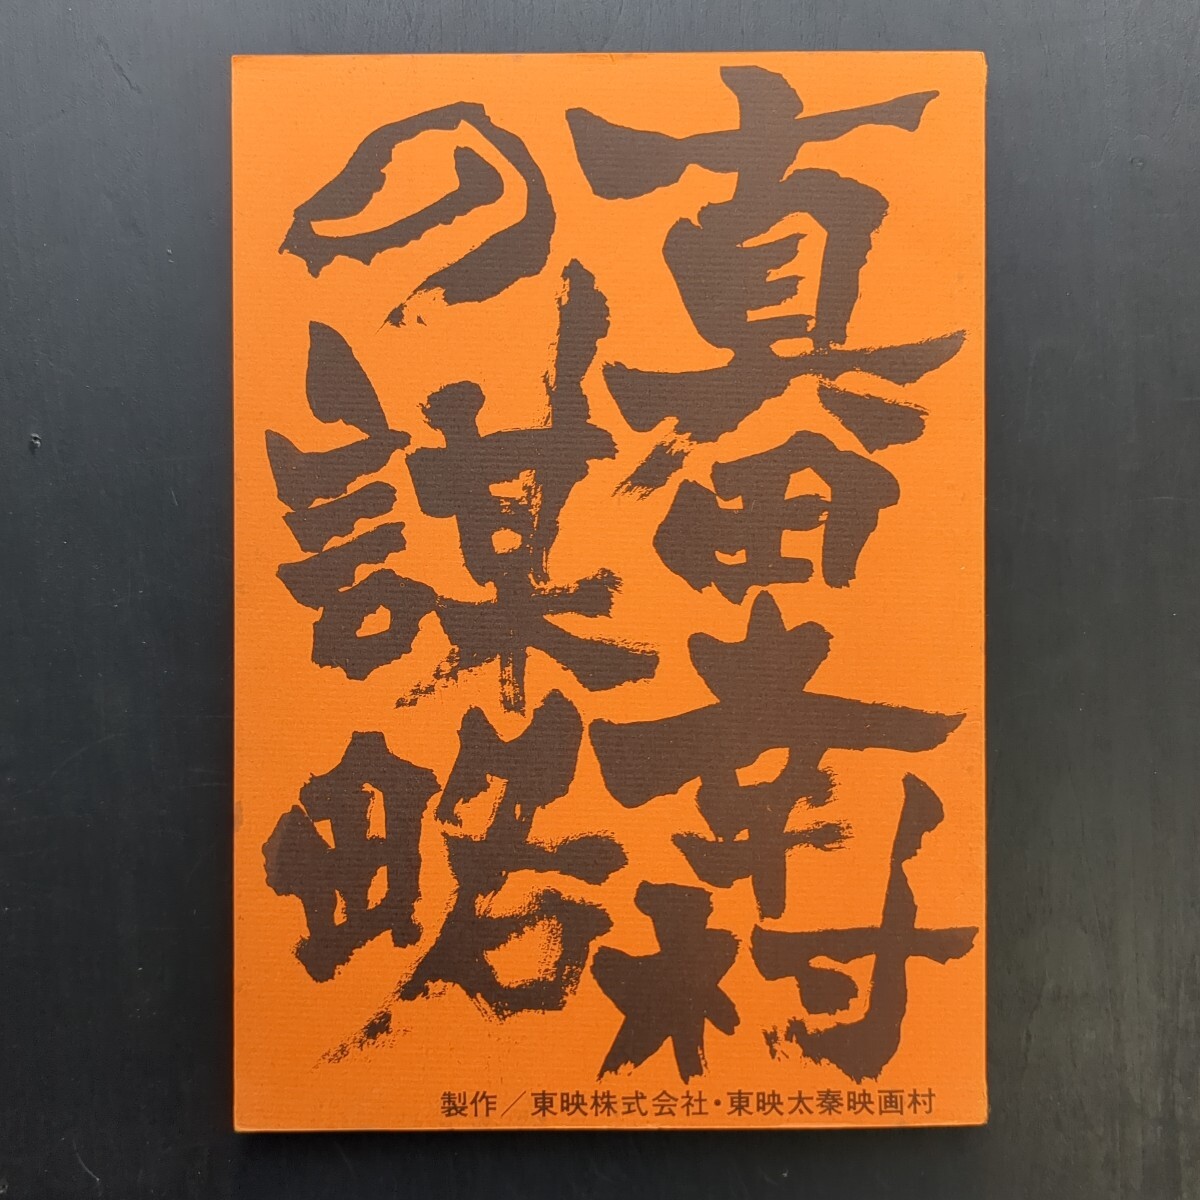 真田幸村
の謀略
製作／東映株式会社・東映太秦映画村